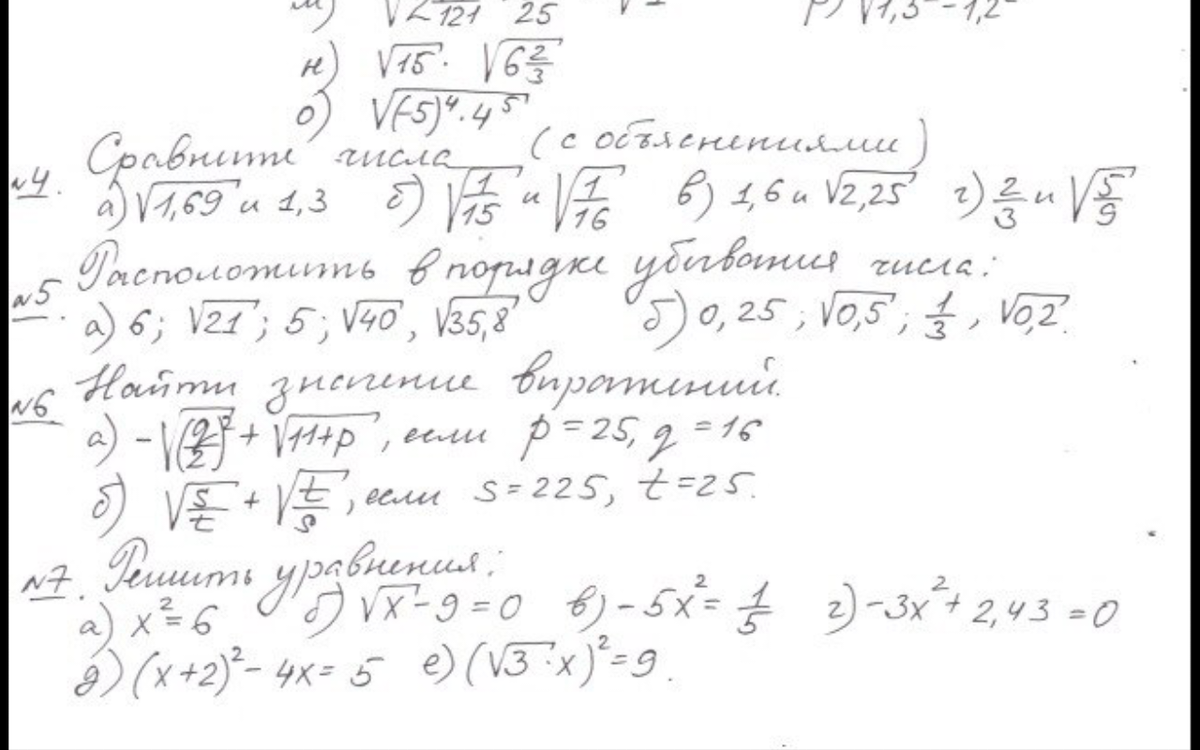 м) √2 /121 · /25 √1 р) √1,3² - 1,2²
н) √15 · √6 2/3
о) √(-5)⁴ · 4⁵
№4. Сравните числа (с объяснениями)
а) √1,69 и 1,3 б) √1/15 и √1/16 в) 1,6 и √2,25 г) 2/3 и √5/9
№5. Расположить в порядке убывания числа:
а) 6; √21; 5; √40, √35,8 б) 0,25; √0,5; 1/3, √0,2.
№6 Найти значение выражений.
а) -√(q/2)² + √11+p, если p = 25, q = 16
б) √s/t + √t/s, если s = 225, t = 25.
№7. Решить уравнения:
а) x² = 6 б) √x - 9 = 0 в) -5x² = 1/5 г) -3x² + 2,43 = 0
д) (x+2)² - 4x = 5 е) (√3 · x)² = 9.